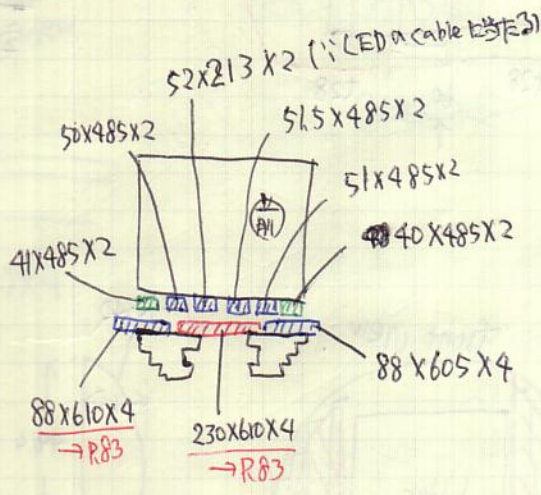 52×213×2 (∵LEDのcableに当たる)
50×485×2
51.5×485×2
51×485×2
40×485×2
41×485×2
88×605×4
88×610×4
→P.83
230×610×4
→P.83